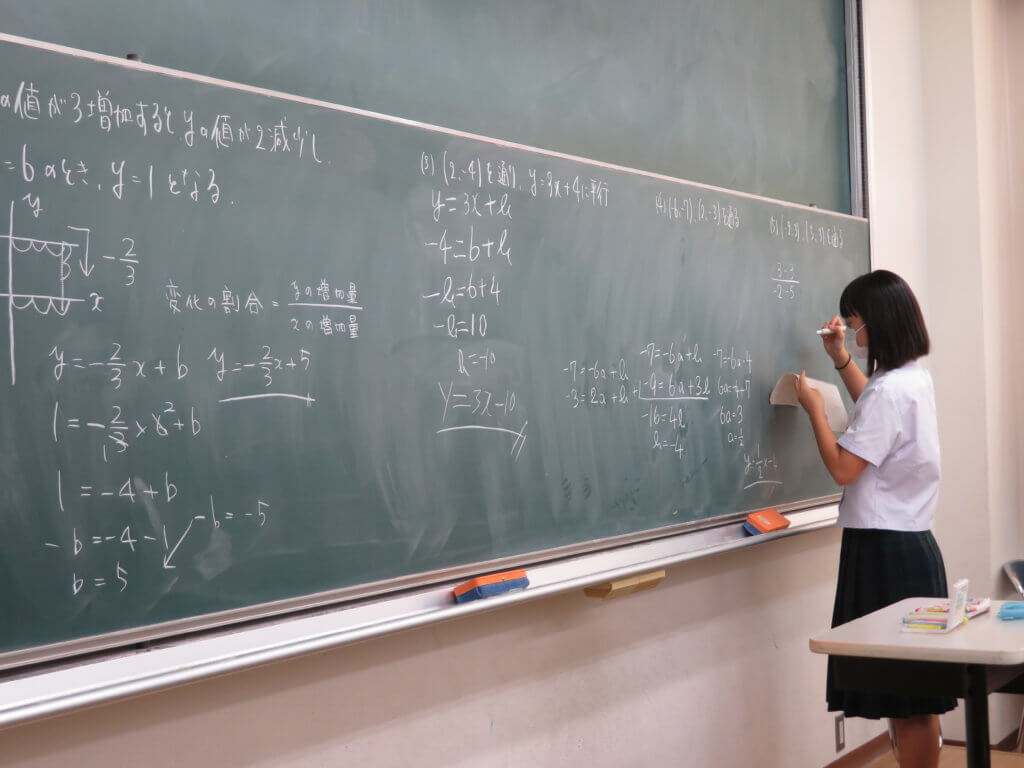 の値が3増加するとyの値が2減少し.
=6のとき、y=1となる.
y
-2/3
x
変化の割合=yの増加量/xの増加量
y=-2/3x+b
y=-2/3x+5
1=-2/3×6^2+b
1=-4+b
-b=-4-1
-b=-5
b=5
(3)(2,-4)を通り、y=3x+4に平行
y=3x+b
-4=6+b
-b=6+4
-b=10
b=-10
y=3x-10
(4)(-6,-7),(2,-3)を通る
-7=-6a+b
-3=2a+b
-7=-6a+b
-9=6a+3b
-16=4b
b=-4
-7=-6a-4
6a=-4+7
6a=3
a=1/2
y=1/2x-4
を通る
3-3/-2-5